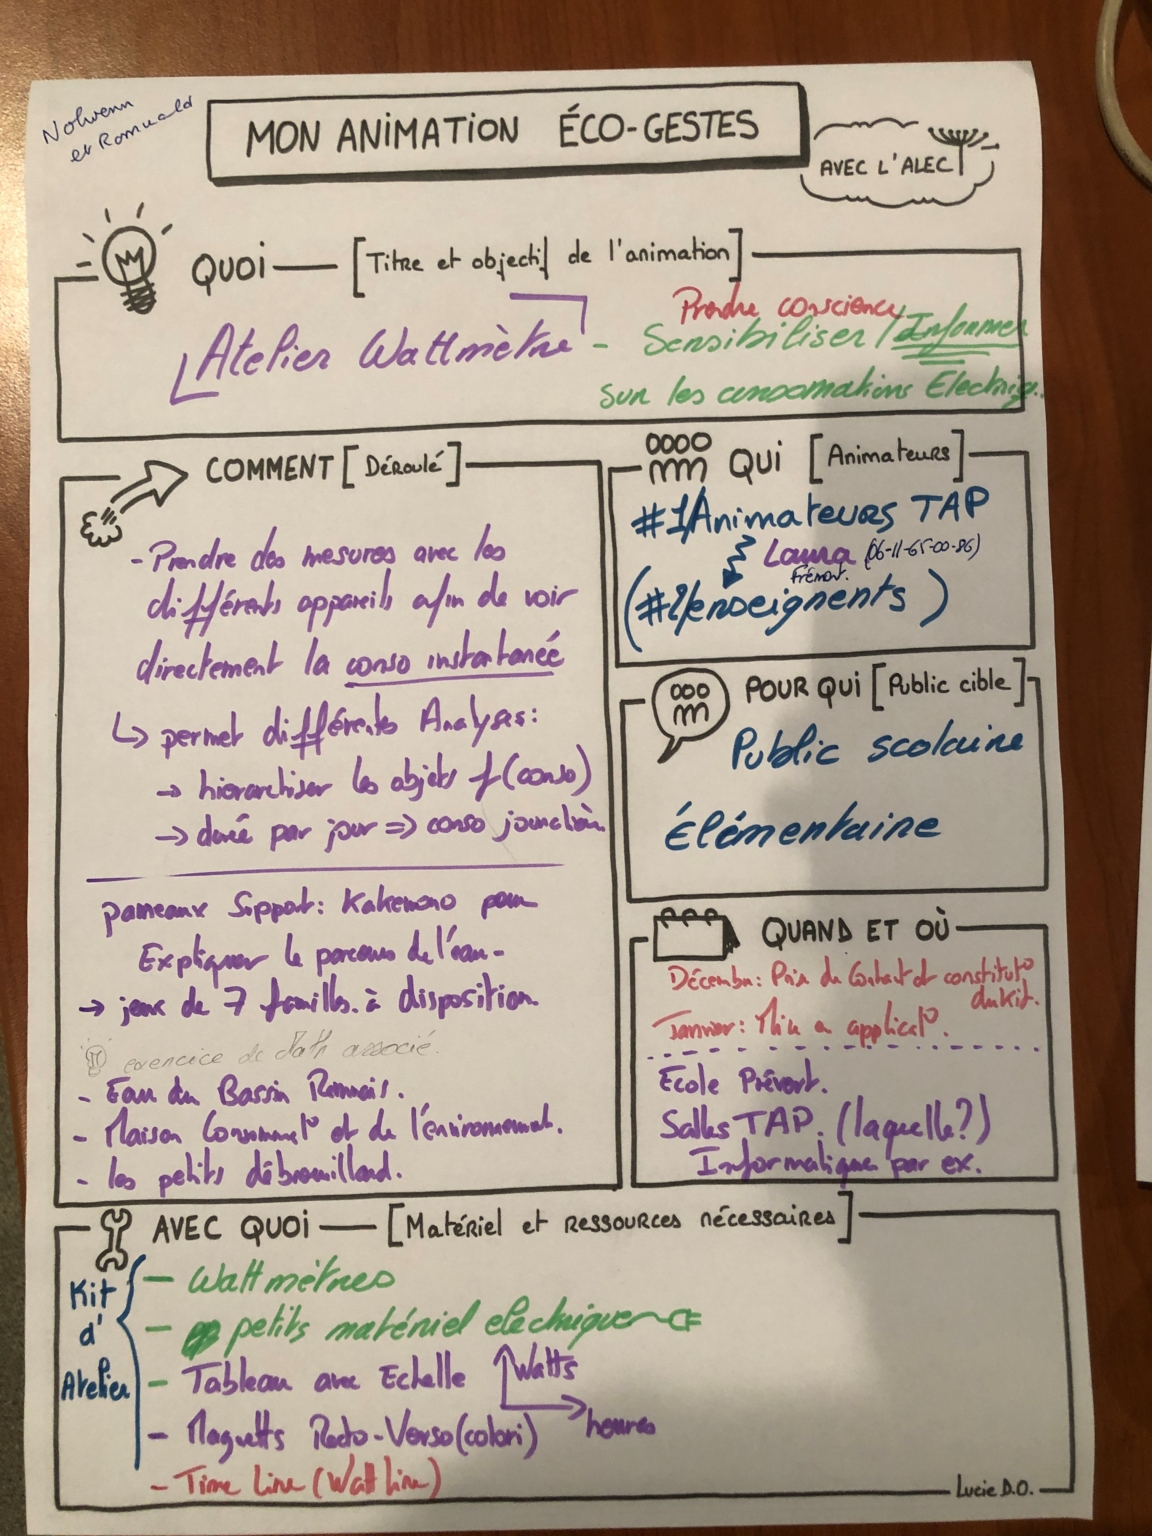 Nolwenn
et Romuald
MON ANIMATION ÉCO-GESTES
AVEC L'ALEC
QUOI [Titre et objectif de l'animation]
Prendre conscience
Atelier Wattmètre - Sensibiliser / Informer
sur les consomations Electriq.
COMMENT [Déroulé]
- Prendre des mesures avec les
différents appareils afin de voir
directement la conso instantanée
↳ permet différentes Analyses:
→ hierarchiser les objets f(conso)
→ durée par jour => conso journalière
panneaux Support: Kakemono pour
Expliquer le parcours de l'eau -
→ jeux de 7 familles à disposition.
exercice de Math associé.
- Eau du Bassin Rennais.
- Maison Consommat° et de l'environnement.
- les petits débrouillard.
QUI [Animateurs]
#1/Animateurs TAP
Laura (06-11-65-00-86)
Frémont.
(#2/enseignents)
POUR QUI [Public cible]
Public scolaire
Élémentaire
QUAND ET OÙ
Décembre: Prise de Contact et constitut°
du Kit.
Janvier: Mise en applicat°.
Ecole Prévert.
Salles TAP. (laquelle?)
Informatique par ex.
AVEC QUOI [Matériel et ressources nécessaires]
Kit
d'
Atelier
- Wattmètres
- petits matériel electrique
- Tableau avec Echelle Watts
heures
- Maquetts Recto-Verso (colori)
- Time Line (Watt line)
Lucie D.O.